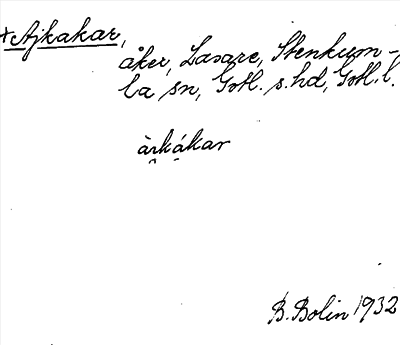 +Ajkakar,
åker, Lasare, Stenkum-
la sn, Gotl. s. hd, Gotl. l.
àrkákar
B. Bolin 1932